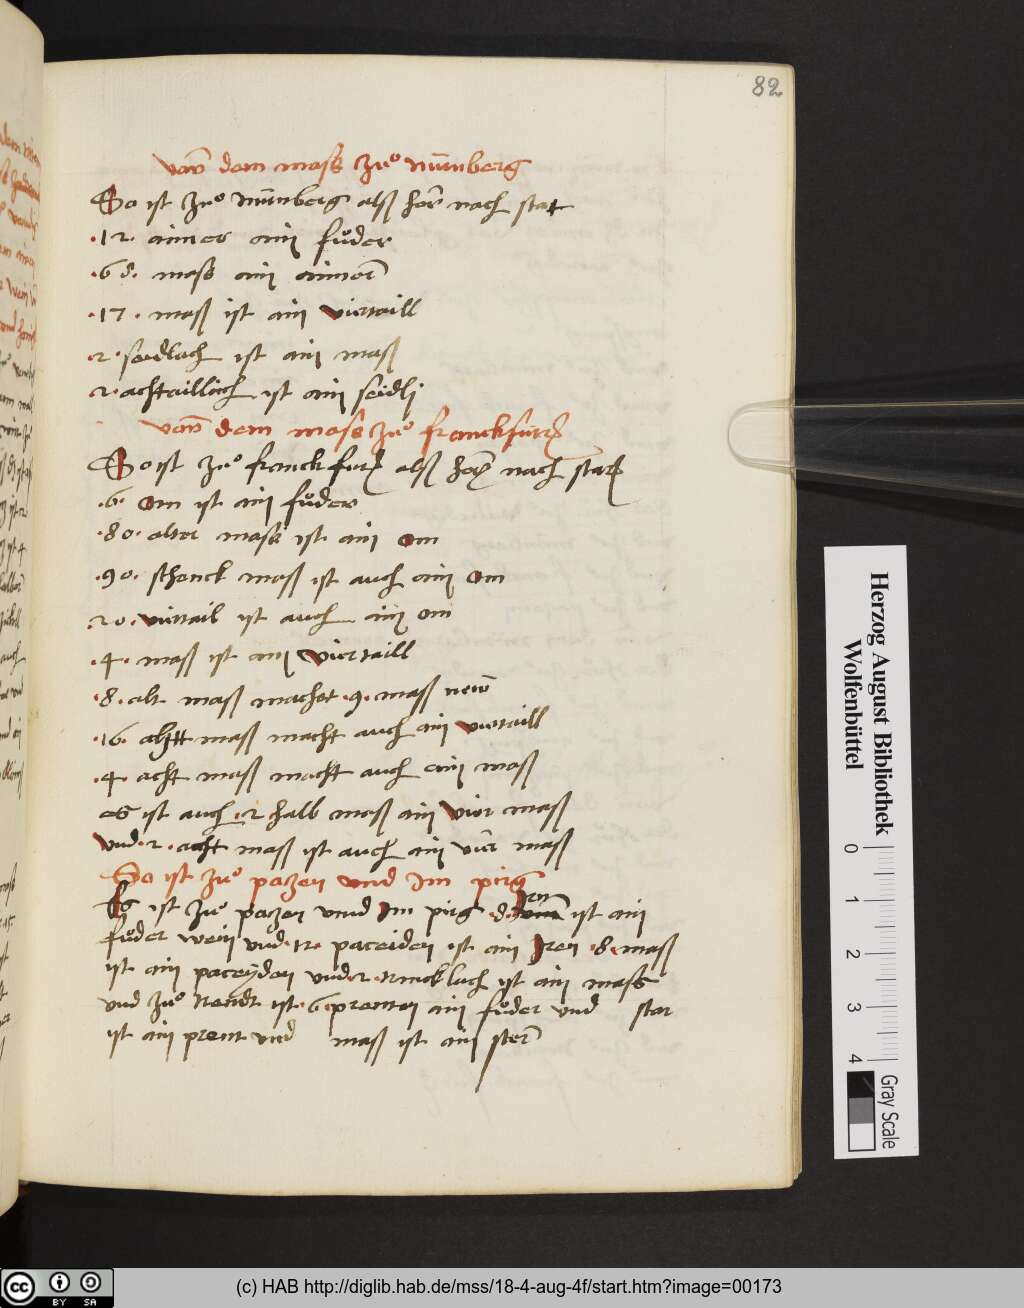 82
vonn dem mass zuͦ nürnberg
So ist zuͦ nürnberg alß her nach stat
.12. aimer ain fuͦder
.68. mass ain aimer
.17. maß ist ain viertaill
.2. seidlach ist ain maß
.2. achtaillach ist ain seidli
vonn dem mass zuͦ franckfurt
So ist zuͦ franckfurt alß her nach stat
.6. om ist ain fuͦder
.80. alter mass ist ain om
.90. schenck maß ist auch ain om
.20. viertail ist auch ain om
.4. maß ist ain viertaill
.8. alt maß machet .9. maß new
.16. maß macht auch ain viertaill
.4. acht maß macht auch ain maß
es ist auch .2. halb maß ain vier maß
vnd .2. acht maß ist auch ain vier maß
So ist zuͦ pozen vnd im pirg
Es ist zuͦ pozen vnnd Im pirg .8. Irn ist ain
fuͦder wein vnd .12. paceiden ist ain Iren .8. maß
ist ain paceyden vnd .2. trincklach ist ain mass
vnd zuͦ triendt ist .6. prenten ain fuͦder vnd star
ist ain prent vnd maß ist ain ster
Herzog August Bibliothek
Wolfenbüttel
0 1 2 3 4
Gray Scale
cc BY SA
(c) HAB http://diglib.hab.de/mss/18-4-aug-4f/start.htm?image=00173